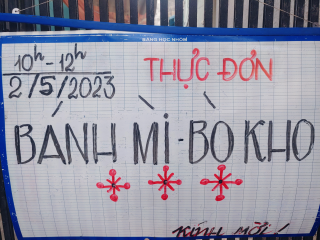 BẢNG HỌC NHÓM
10h - 12h
2/5/2023
THỰC ĐƠN
BÁNH MÌ - BÒ KHO
KÍNH MỜI!